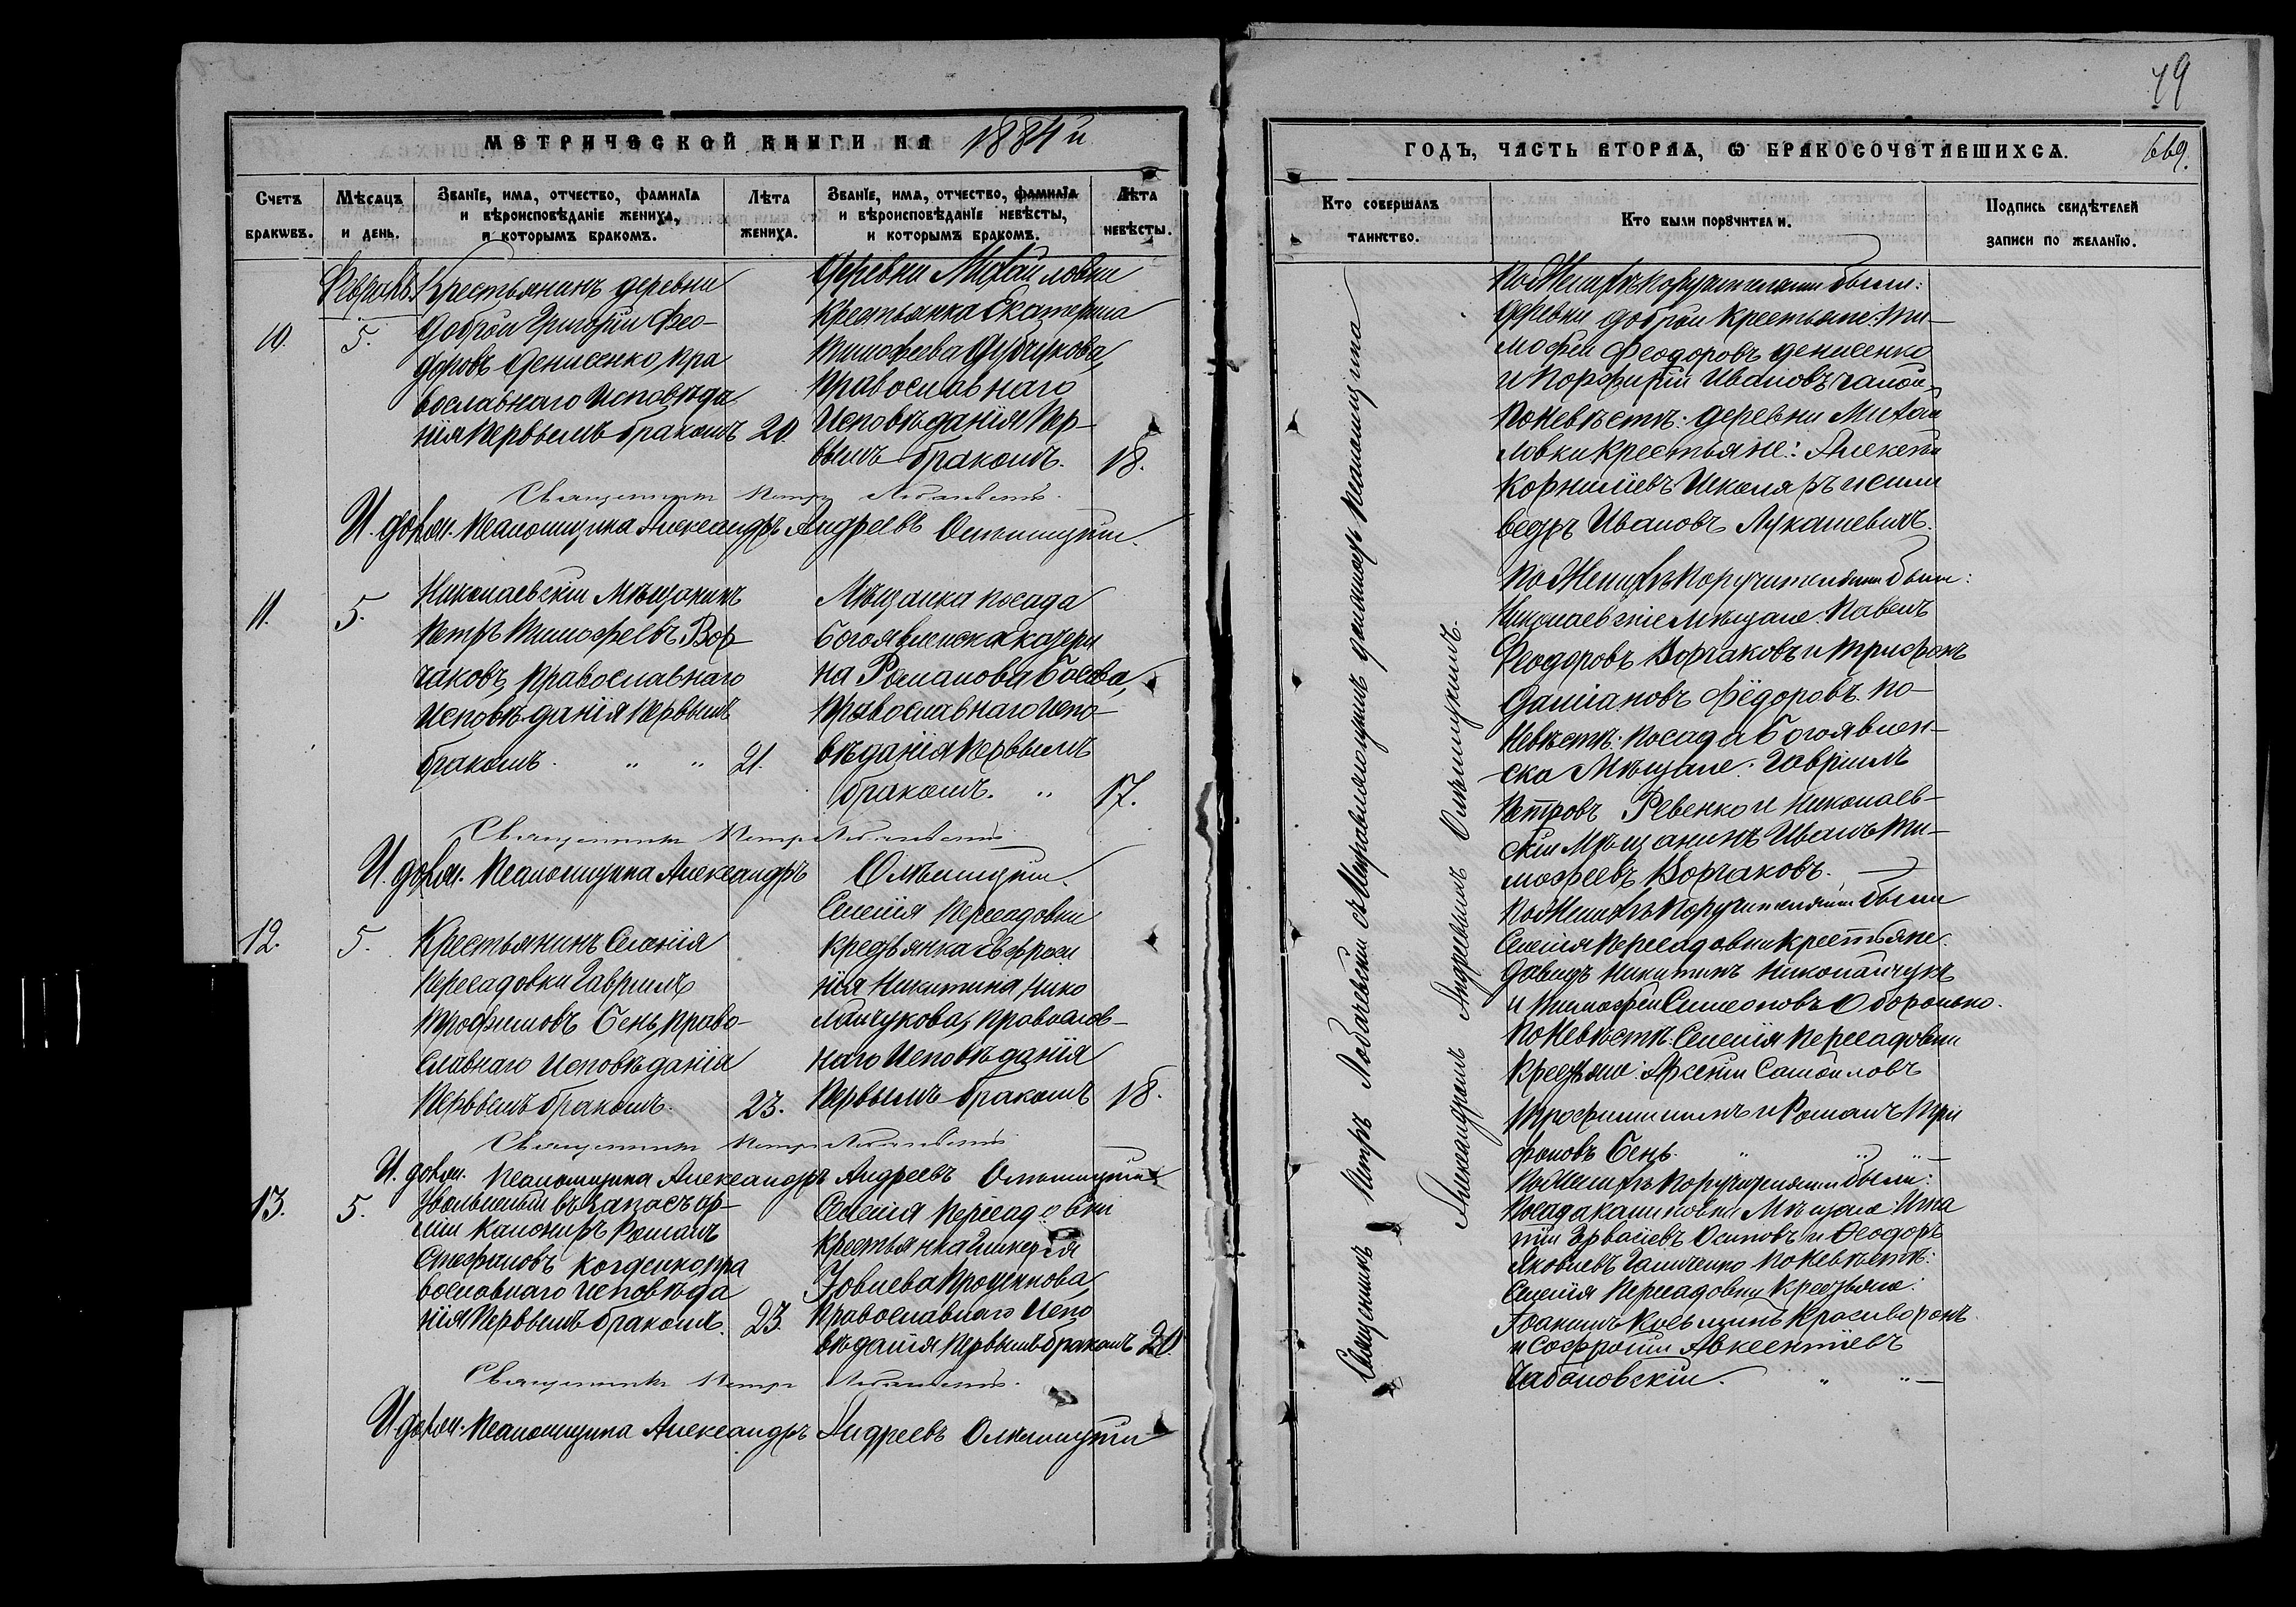 МЕТРИЧЕСКОЙ КНИГИ НА 1884 й
Счетъ браковъ.
Мѣсяцъ и день.
Званіе, имя, отчество, фамилія
и вѣроисповѣданіе жениха,
и которымъ бракомъ.
Лѣта жениха.
Званіе, имя, отчество, фамилія
и вѣроисповѣданіе невѣсты,
и которымъ бракомъ.
Лѣта невѣсты.
10.
5.
Крестьянинъ деревни
Доброй Григорій Фео-
доровъ Денисенко, пра
вославнаго исповѣда
нія первымъ бракомъ
20.
Деревни Михайловки
крестьянка Екатерина
Тимофеева
православнаго
исповѣданія пер-
вымъ бракомъ.
18.
Священникъ Петръ
И. долж. Псаломщика Александръ Андреевъ
11.
5.
Николаевскій мѣщанинъ
Петръ Тимофеевъ Вор-
чаковъ, православнаго
исповѣданія первымъ
бракомъ. " "
21.
Мѣщанка посада
Богоявленска Катери
на Романова Басова,
православнаго испо-
вѣданія первымъ
бракомъ. "
17.
Священникъ Петръ
И. долж. Псаломщика Александръ
12.
5.
Крестьянинъ Селенія
Пересадовки Гавріилъ
Трофимовъ Бень, право-
славнаго исповѣданія
первымъ бракомъ.
23.
Селенія Пересадовки
крестьянка Евфроси
нія Никитина Нико
лайчукова, православ-
наго исповѣданія
первымъ бракомъ
18.
Священникъ Петръ
И. долж. Псаломщика Александръ Андреевъ
13.
5.
Уволенный въ запасъ ар-
міи канониръ Романъ
Стефановъ пра
вославнаго исповѣда
нія первымъ бракомъ.
23.
Селенія Пересадовки
крестьянка Гликерія
Іовлева
православнаго испо
вѣданія первымъ бракомъ
20.
Священникъ Петръ
И. долж. Псаломщика Александръ Андреевъ
79
ГОДЪ, ЧАСТЬ ВТОРАЯ, Ѡ БРАКОСОЧЕТАВШИХСЯ.
669.
Кто совершалъ таинство.
Кто были поручители.
Подпись свидѣтелей
записи по желанію.
Священникъ Петръ Лобачевскій съ исправляющимъ должность псаломщика
Александромъ Андреевымъ
По женихѣ поручителями были:
деревни Доброй крестьяне: Ти-
мофей Феодоровъ Денисенко
и Порфирій Ивановъ
по невѣстѣ: деревни Михай
ловки крестьяне: Алексѣй
Корниліевъ Школяръ и
Ивановъ Лукашевичъ.
По женихѣ поручителями были:
Николаевскіе мѣщане: Павелъ
Феодоровъ Ворчаковъ и Трифонъ
Даміановъ Фёдоровъ. по
невѣстѣ: посада Богоявлен-
ска мѣщане: Гавріилъ
Петровъ Ревенко и Николаев-
скій мѣщанинъ Иванъ Ти-
мофеевъ Ворчаковъ.
По женихѣ поручителями были
Селенія Пересадовки крестьяне:
Давидъ Никитинъ Николайчукъ
и Тимофей Симеоновъ
по невѣстѣ: Селенія Пересадовки
крестьяне: Арсеній Самойловъ
и Романъ Три
фоновъ Бень.
По женихѣ поручителями были:
Посада Калиновки мѣщане: Игна
тій Осиповъ и Феодоръ
Яковлевъ Галиченко по невѣстѣ:
Селенія Пересадовки крестьяне:
Іоакимъ Косьминъ
и Софроній Авксентіевъ
Чабановскій.